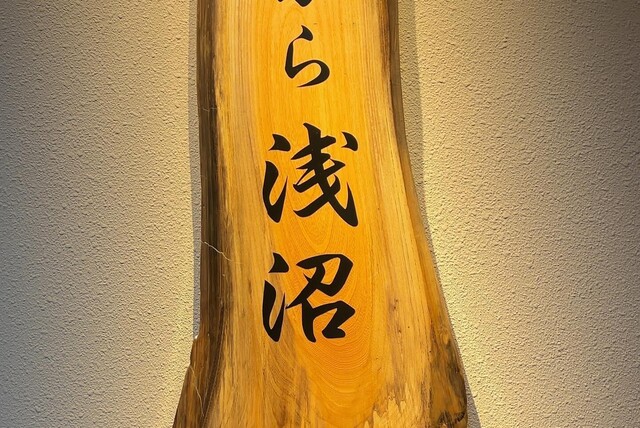 ら浅沼